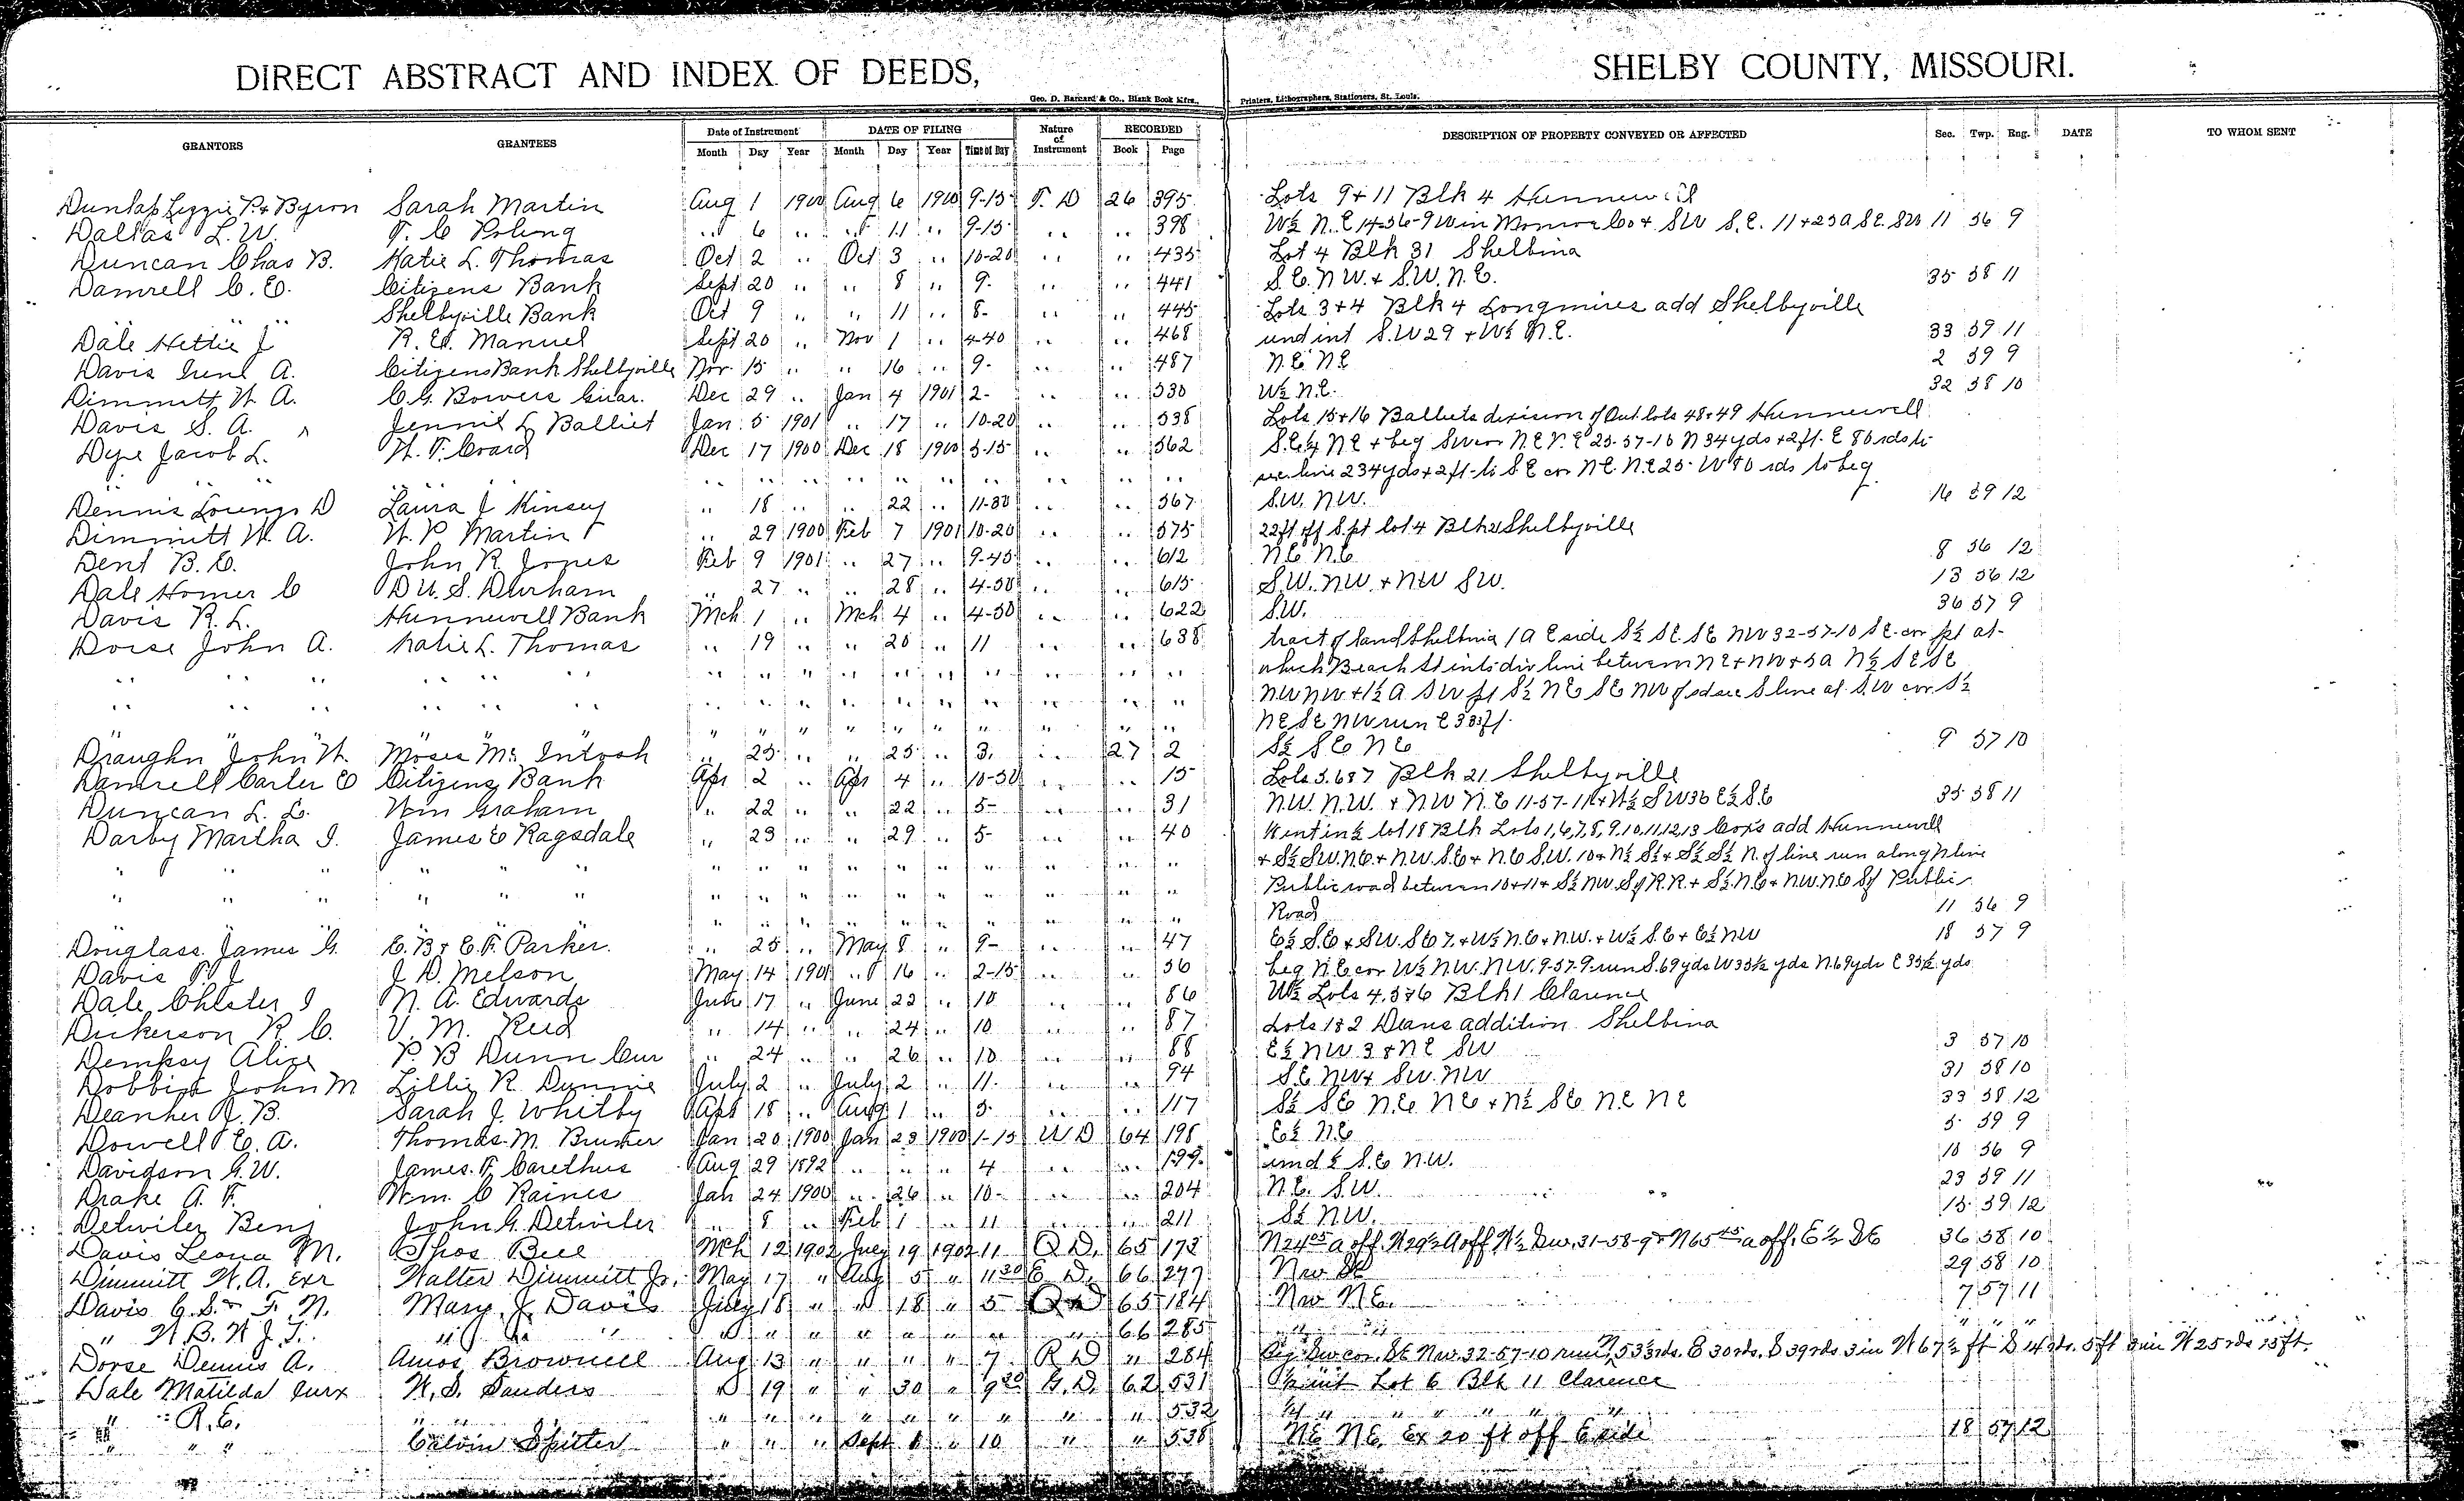 DIRECT ABSTRACT AND INDEX OF DEEDS, SHELBY COUNTY, MISSOURI.
Geo. D. Barnard & Co., Blank Book Mfrs., Printers, Lithographers, Stationers, St. Louis.
GRANTORS GRANTEES Date of Instrument DATE OF FILING Nature of Instrument RECORDED DESCRIPTION OF PROPERTY CONVEYED OR AFFECTED Sec. Twp. Rng. DATE TO WHOM SENT
Month Day Year Month Day Year Time of Day Book Page
Dunlap Lizzie P. & Byron Sarah Martin Aug 1 1900 Aug 6 1900 9-15 T. D 26 395 Lots 9 + 11 Blk 4 Hunnewell
Dallas L. W. T. C Poling " 6 " " 11 " 9-15 " " 398 W½ N.E 14-56-9 W in Monroe Co + SW S.E. 11 + 25 A S.E. SW 11 56 9
Duncan Chas B. Katie L. Thomas Oct 2 " Oct 3 " 10-20 " " 435 Lot 4 Blk 31 Shelbina
Damrell C. E. Citizens Bank Sept 20 " " 8 " 9- " " 441 S.E. N W. + S.W. N.E. 35 58 11
" " " Shelbyville Bank Oct 9 " " 11 " 8- " " 445 Lots 3 + 4 Blk 4 Longmires add Shelbyville
Dale Hettie J R. E. Manuel Sept 20 " Nov 1 " 4-40 " " 468 und int S.W 29 + W½ N.E. 33 59 11
Davis Irene A. Citizens Bank Shelbyville Nov 15 " " 16 " 9- " " 487 N.E. N.E 2 59 9
Dimmitt W. A. C. G. Bowers Dec 29 " Jan 4 1901 2- " " 530 W½ N.E. 32 58 10
Davis S. A. Jennie L Balliet Jan 5 1901 " 17 " 10-20 " " 538 Lots 15 + 16 Balliets division of Out lots 48 + 49 Hunnewell
Dye Jacob L. W. T. Coard Dec 17 1900 Dec 18 1900 3-15 " " 562 S.E¼ N E + beg SW cor N.E N.E 25-57-10 N 34 yds + 2 ft. E 80 rds to
" " " " " " " " " " " " " " " sec line 234 yds + 2 ft to S.E cor N.E. N.E 25 W 80 rds to beg
Dennis D Laura J Kinsey " 18 " " 22 " 11-30 " " 567 S.W. N.W. 16 59 12
Dimmitt W. A. W. P. Martin " 29 1900 Feb 7 1901 10-20 " " 575 22 ft off S. pt lot 4 Blk Shelbyville
Dent B. E. John R. Jones Feb 9 1901 " 27 " 9-45 " " 612 N.E N.E 8 56 12
Dale Homer C D U. S. Durham " 27 " " 28 " 4-50 " " 615 S.W. NW. + NW SW. 13 56 12
Davis R. L. Hunnewell Bank Mch 1 " Mch 4 " 4-50 " " 622 S.W. 36 57 9
Dorse John A. Katie L. Thomas " 19 " " 20 " 11 " " 638 tract of land Shelbina 1 A E side S½ SE. SE NW 32-57-10 S E. cor pt at
" " " " " " " " " " " " " " " which Beach St ints div line between N E + NW + 5 a N½ S E SE
" " " " " " " " " " " " " " " NW NW + 1½ A SW pt S½ NE SE NW of sd sec S line at S.W cor S½
" " " " " " " " " " " " " " " NE SE NW run E 383 ft.
Draughn John W. Moses Mc Intosh " 25 " " 25 " 3. " 27 2 S½ S E N E 9 57 10
Damrell Carter E Citizens Bank Apr 2 " Apr 4 " 10-30 " " 15 Lots 5. 6 & 7 Blk 21 Shelbyville
Duncan L. L. Wm Graham " 22 " " 22 " 5- " " 31 N.W. N.W. + NW N.E 11-57-11 + W½ S W 36 E½ S.E 35 58 11
Darby Martha J. James E Ragsdale " 23 " " 29 " 5- " " 40 lot 18 Blk Lots 1, 6, 7, 8, 9, 10, 11, 12, 13 Cox's add Hunnewell
" " " " " " " " " " " " " " " + S½ SW. N.E. + N.W. S.E + N.E S.W. 10 + N½ S½ + S½ S½ N. of line run along N line
" " " " " " " " " " " " " " " Public road between 10 + 11 + S½ NW S of R.R. + S½ N.E + N.W. N.E S of Public
" " " " " " " " " " " " " " " Road 11 56 9
Douglass James G. E. B & E. F. Parker. " 25 " May 8 " 9- " " 47 E½ S.E + SW. SE 7. + W½ N.E + N.W. + W½ S.E + E½ NW 18 57 9
Davis T. J J. D. Melson May 14 1901 " 16 " 2-15 " " 56 beg N.E cor W½ N.W. N.W. 9-57-9 run S. 69 yds W 35½ yds N. 69 yds E 35½ yds
Dale Chlster I N. A. Edwards June 17 " June 22 " 10 " " 86 W½ Lots 4, 5 & 6 Blk 1 Clarence
Dickerson R. C. V. M. Reid " 14 " " 24 " 10 " " 87 Lots 1 & 2 Deans addition Shelbina
Dempsy Alice P. B Dunn Cur " 24 " " 26 " 10 " " 88 E½ NW 3 & NE SW 3 57 10
John M Lillie R. July 2 " July 2 " 11. " " 94 S.E. NW + SW. NW 31 58 10
Deanher J. B. Sarah J. Whitby Apr 18 " Aug 1 " 5- " " 117 S½ S E N.E N E + N½ SE N.E N E 33 58 12
Dowell E. A. Thomas M. Bruner Jan 20 1900 Jan 23 1900 1-15 W D 64 198 E½ N.E 5 59 9
Davidson G. W. James. F. Carethus Aug 29 1892 " " " 4 " " 199 und ½ S.E N.W. 10 56 9
Drake A. F. Wm. C Raines Jan 24 1900 " 26 " 10- " " 204 N.E. S.W. 23 59 11
Detwiler Benj John G. Detwiler " 8 " Feb 1 " 11 " " 211 S½ N.W. 13 59 12
Davis Leona M. Thos Bell Mch 12 1902 July 19 1902 11 Q D. 65 173 N 24 05 a off N 29½ A off W½ Sw. 31-58-9 & N 65 a off. E ½ SE 36 58 10
Dimmitt W. A. Exr Walter Dimmitt Jr. May 17 " Aug 5 " 11 30 E D. 66 277 Nw SE 29 58 10
Davis C. S. & F. N. Mary J. Davis July 18 " " 18 " 5 Q D 65 184 Nw N.E. 7 57 11
" W. B. W J. T. " " " " " " " " " " " 66 285 " " " " "
Dorse Dennis A. Amos Brownell Aug 13 " " " " 7 R D " 284 Beg Sw cor. SE Nw. 32-57-10 run N, 53⅓ rds. E 30 rds. S 39 rds 3 in W 67½ ft S 14 rds. 5 ft 3 in W 25 rds 15 ft.
Dale Matilda Curx W. S. Sanders " 19 " " 30 " 9 20 G. D. 62 531 Lot 6 Blk 11 Clarence
" R. E. " " " " " " " " " " " 532 " " " " " "
" " " Calvin Spitter " " " Sept 8 " 10 " " 538 NE NE. Ex 20 ft off E side 18 57 12